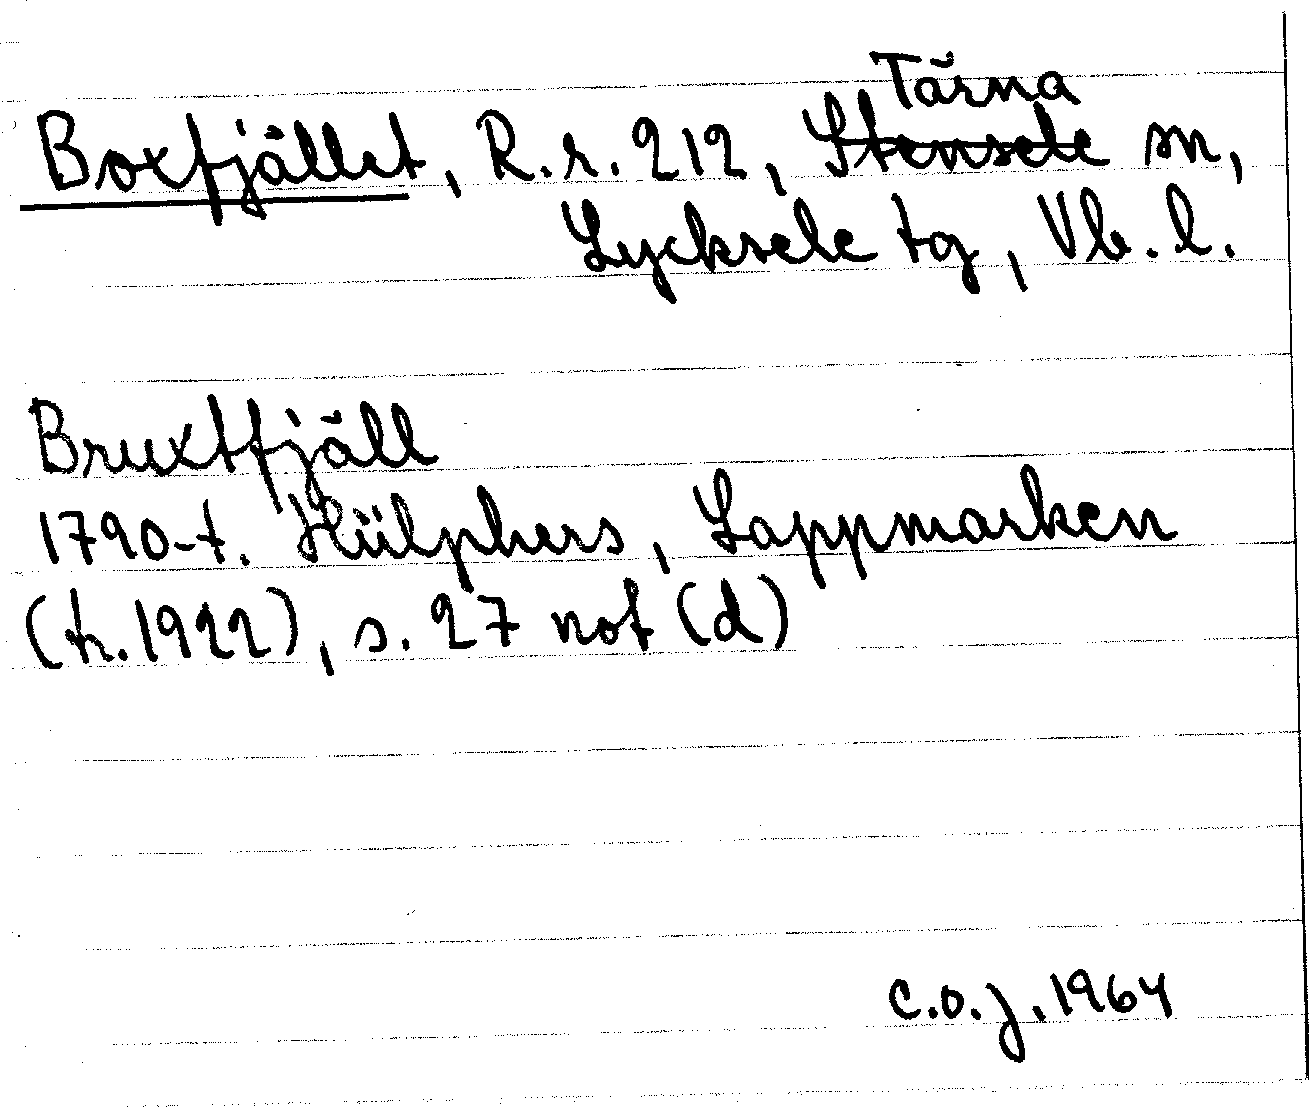 Tärna
Boxfjället, R.r. 212, Stensele sn,
Lycksele tg, Vb. l.
Bruxtfjäll
1790-t. Hülphers, Lappmarken
(tr. 1922), s. 27 not (d)
C.O.J. 1964